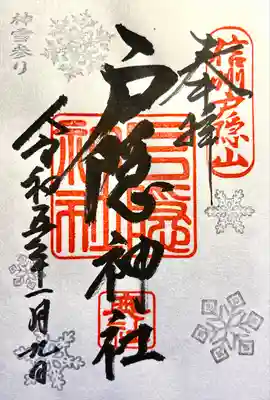 信州戸隠山
奉拝
戸隠神社
戸隠
神社
令和五年一月九日
神雪参り